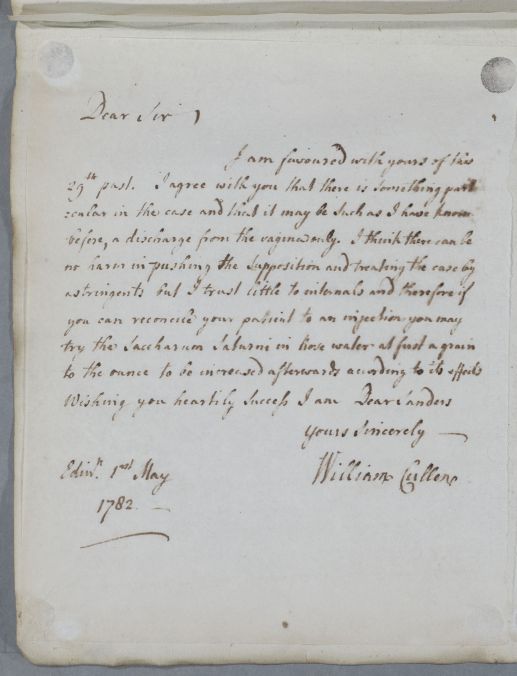 Dear Sir
I am favoured with yours of the
29th past. I agree with you that there is something part
icular in the case and that it may be such as I have known
before, a discharge from the vagina only. I think there can be
no harm in pushing the supposition and treating the case by
astringents but I trust little to internals and therefore if
you can reconcile your patient to an injection you may
try the Saccharum Saturni in Rose water at first a grain
to the ounce to be increased afterwards according to its effects
Wishing you heartily success I am Dear Sanders
yours sincerely
William Cullen
Edinr. 1st May
1782.